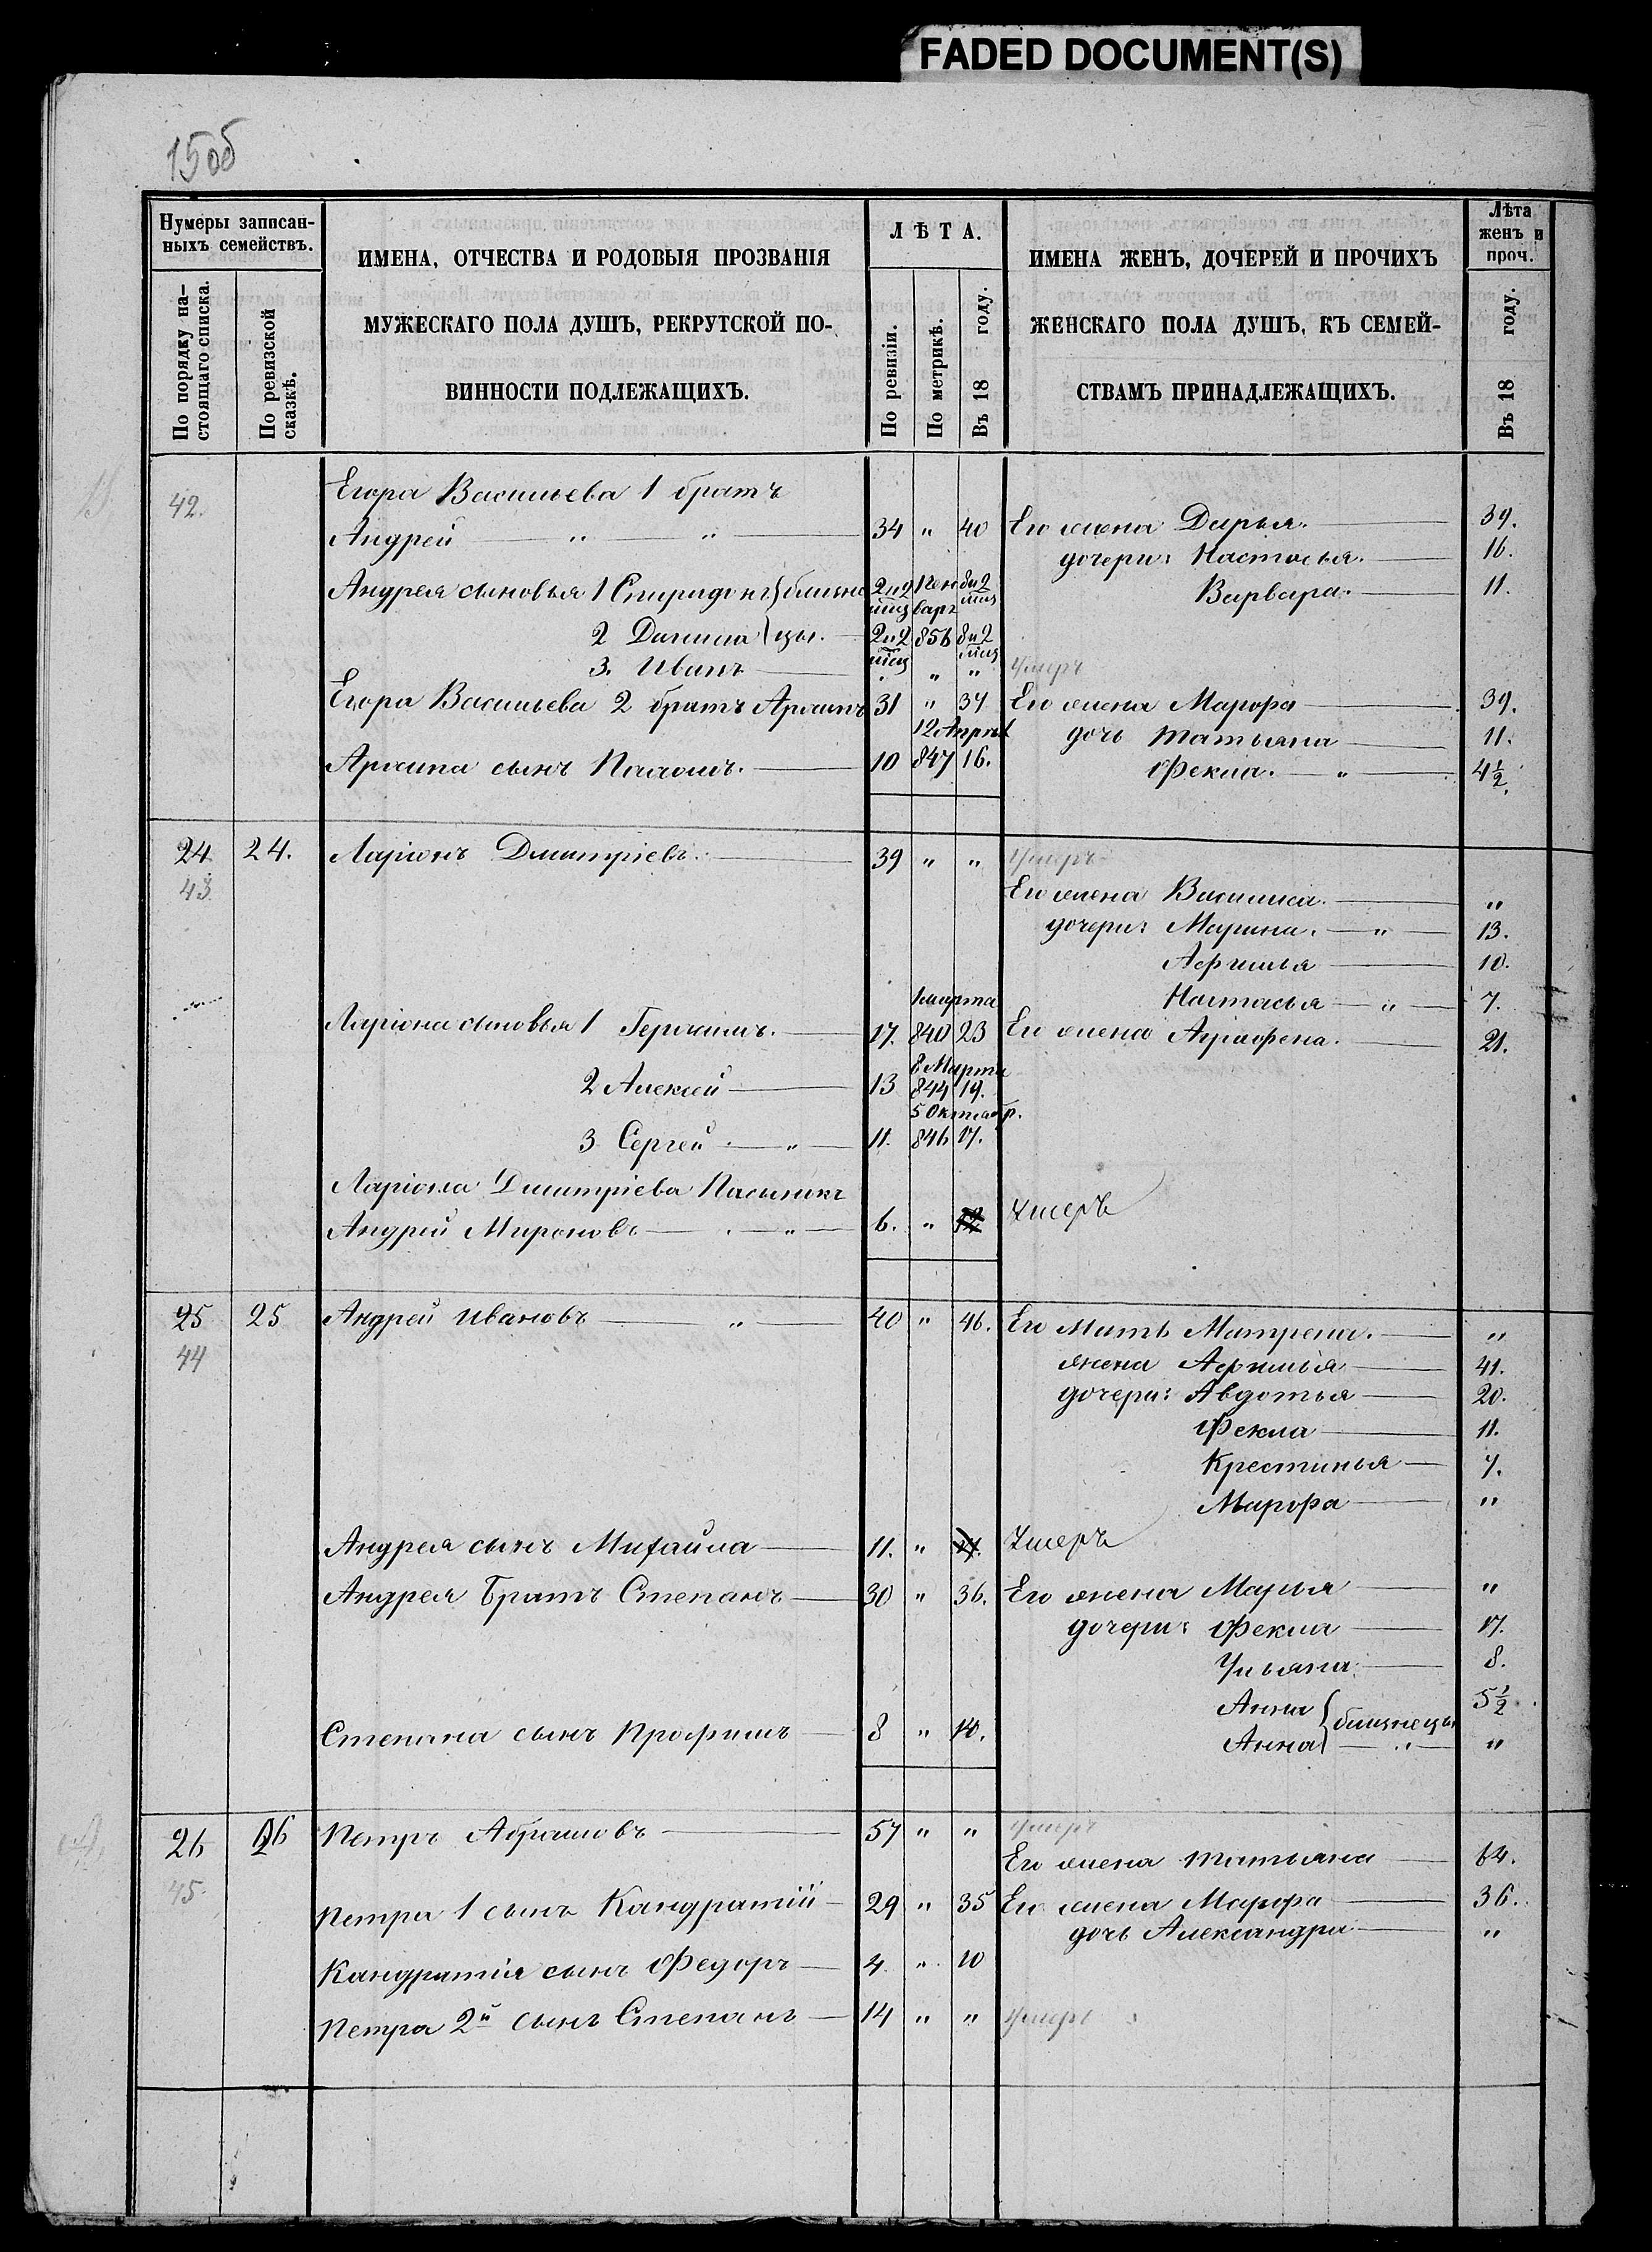 FADED DOCUMENT(S)
15об
Нумеры записан-
ныхъ семействъ.
По порядку на-
стоящаго списка.
По ревизской
сказкѣ.
ИМЕНА, ОТЧЕСТВА И РОДОВЫЯ ПРОЗВАНІЯ
МУЖЕСКАГО ПОЛА ДУШЪ, РЕКРУТСКОЙ ПО-
ВИННОСТИ ПОДЛЕЖАЩИХЪ.
ЛѢТА.
По ревизіи.
По метрикѣ.
Въ 18 году.
ИМЕНА ЖЕНЪ, ДОЧЕРЕЙ И ПРОЧИХЪ
ЖЕНСКАГО ПОЛА ДУШЪ, КЪ СЕМЕЙ-
СТВАМЪ ПРИНАДЛЕЖАЩИХЪ.
Лѣта
женъ и
проч.
Въ 18 году.
42. Егора Васильева 1 братъ
Андрей " " 34 " 40 Его жена Дарья. 39.
дочери: Настасья. 16.
Андрея сыновья 1 Спиридонъ } близне 2 и 2 мѣс Генваря 8 и 2 мѣс Варвара. 11.
2 Данила } цы. 2 и 2 мѣс 856 8 и 2 мѣс
3. Иванъ " " умеръ
Егора Васильева 2 братъ 31 " 37 Его жена Марфа 39.
12 Апрѣл дочь Татьяна 11.
сынъ 10 847 16. Фекла. " 4½.
24 24. Ларіонъ Дмитріевъ. 39 " " умеръ
43 Его жена Василиса. "
дочери: Марина. " 13.
Афимья 10.
1 марта Настасья " 7.
Ларіона сыновья 1 Герасимъ. 17. 840 23 Его жена Аграфена. 21.
8 Марта
2 Алексѣй 13 844 19.
5 Октябр.
3 Сергей " 11. 846 17.
Ларіона Дмитріева Пасынокъ
Андрей Мироновъ " 6. " 12 Умеръ
25 25 Андрей Ивановъ " 40 " 46. Его Мать Матрена. "
44 жена Афимья 41.
дочери: Авдотья 20.
Фекла 11.
Крестинья 7.
Марфа "
Андрея сынъ Михайла 11. " 17. Умеръ
Андрея Братъ Степанъ 30 " 36. Его жена Марья "
дочери: Фекла 17.
Ульяна. 8.
Анна { близнецы 5½.
Степана сынъ Трофимъ 8 " 14. Анна { " "
26 26 Петръ Абрамовъ 57 " " умеръ
Его жена Татьяна 64.
45. Петра 1 сынъ Кандратій 29 " 35 Его жена Марфа 36.
дочь Александра "
Кандратія сынъ Федоръ 4. " 10
Петра 2й сынъ Степанъ 14 " " умеръ